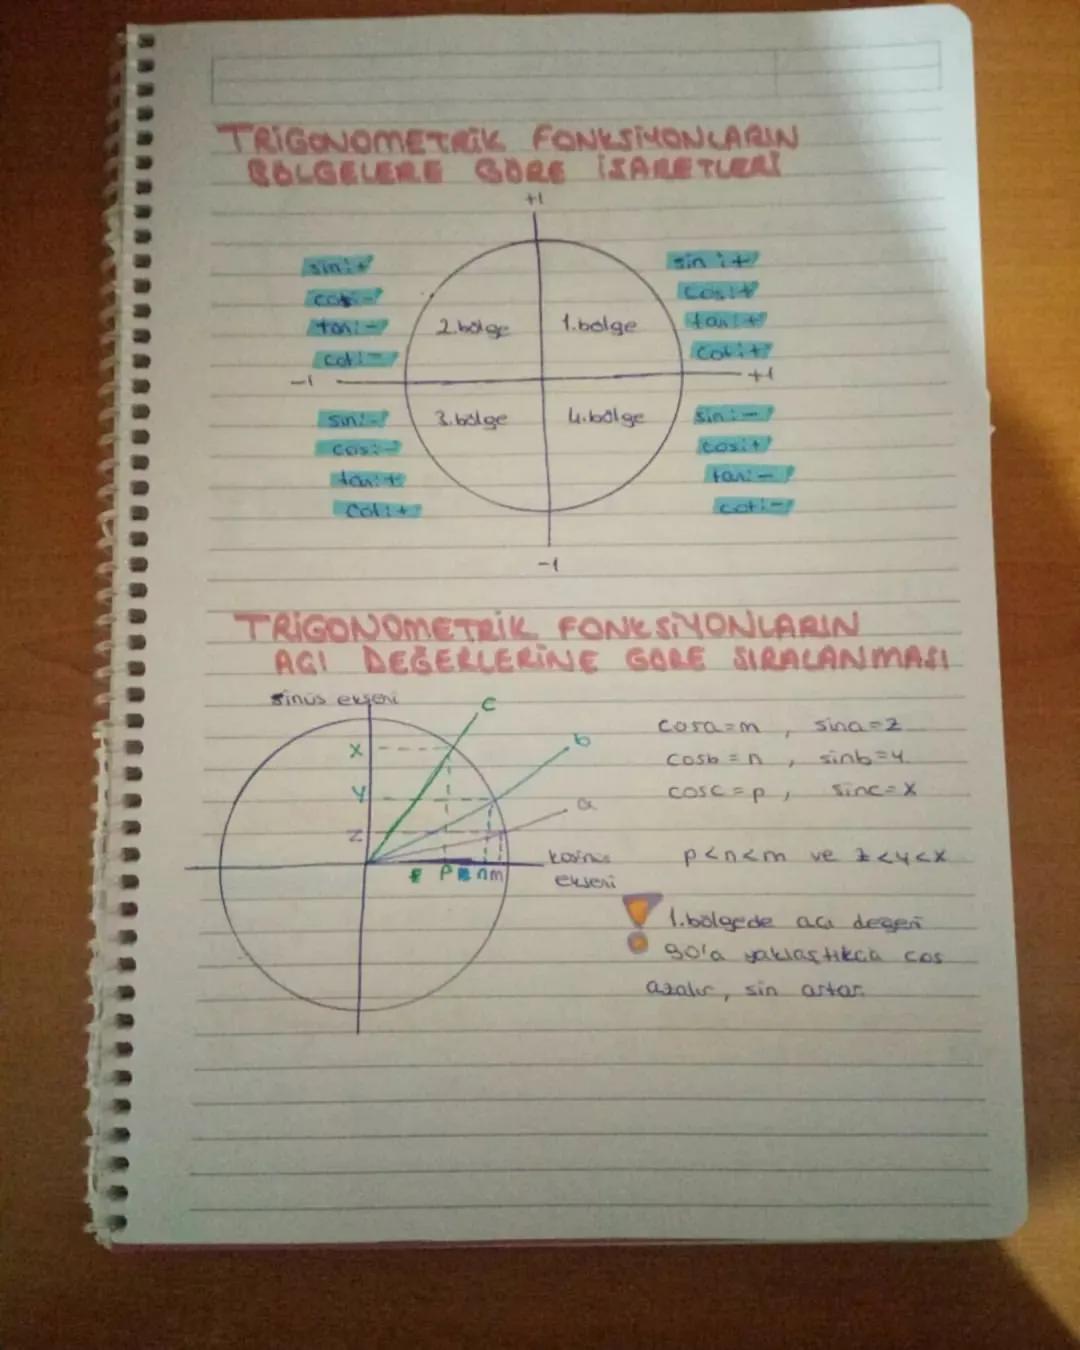 TRİGONOMETRİK FONKSİYONLARIN
BÖLGELERE GÖRE İŞARETLERİ
+1
sin:+
cos:-
tan:-
cot:-
2.bölge
1.bölge
sin:+
cos:+
tan:+
cot:+
-1
+1
sin:-
cos:-
tan:+
cot:+
3.bölge
4.bölge
sin:-
cos:+
tan:-
cot:-
-1
TRİGONOMETRİK FONKSİYONLARIN
AÇI DEĞERLERİNE GÖRE SIRALANMASI
sinüs ekseni
c
x
b
y
a
z
p n m
kosinüs
ekseni
cosa=m , sina=z
cosb=n , sinb=y
cosc=p , sinc=x
p<n<m ve z<y<x
! 1.bölgede açı değeri
90'a yaklaştıkça cos
azalır, sin artar.